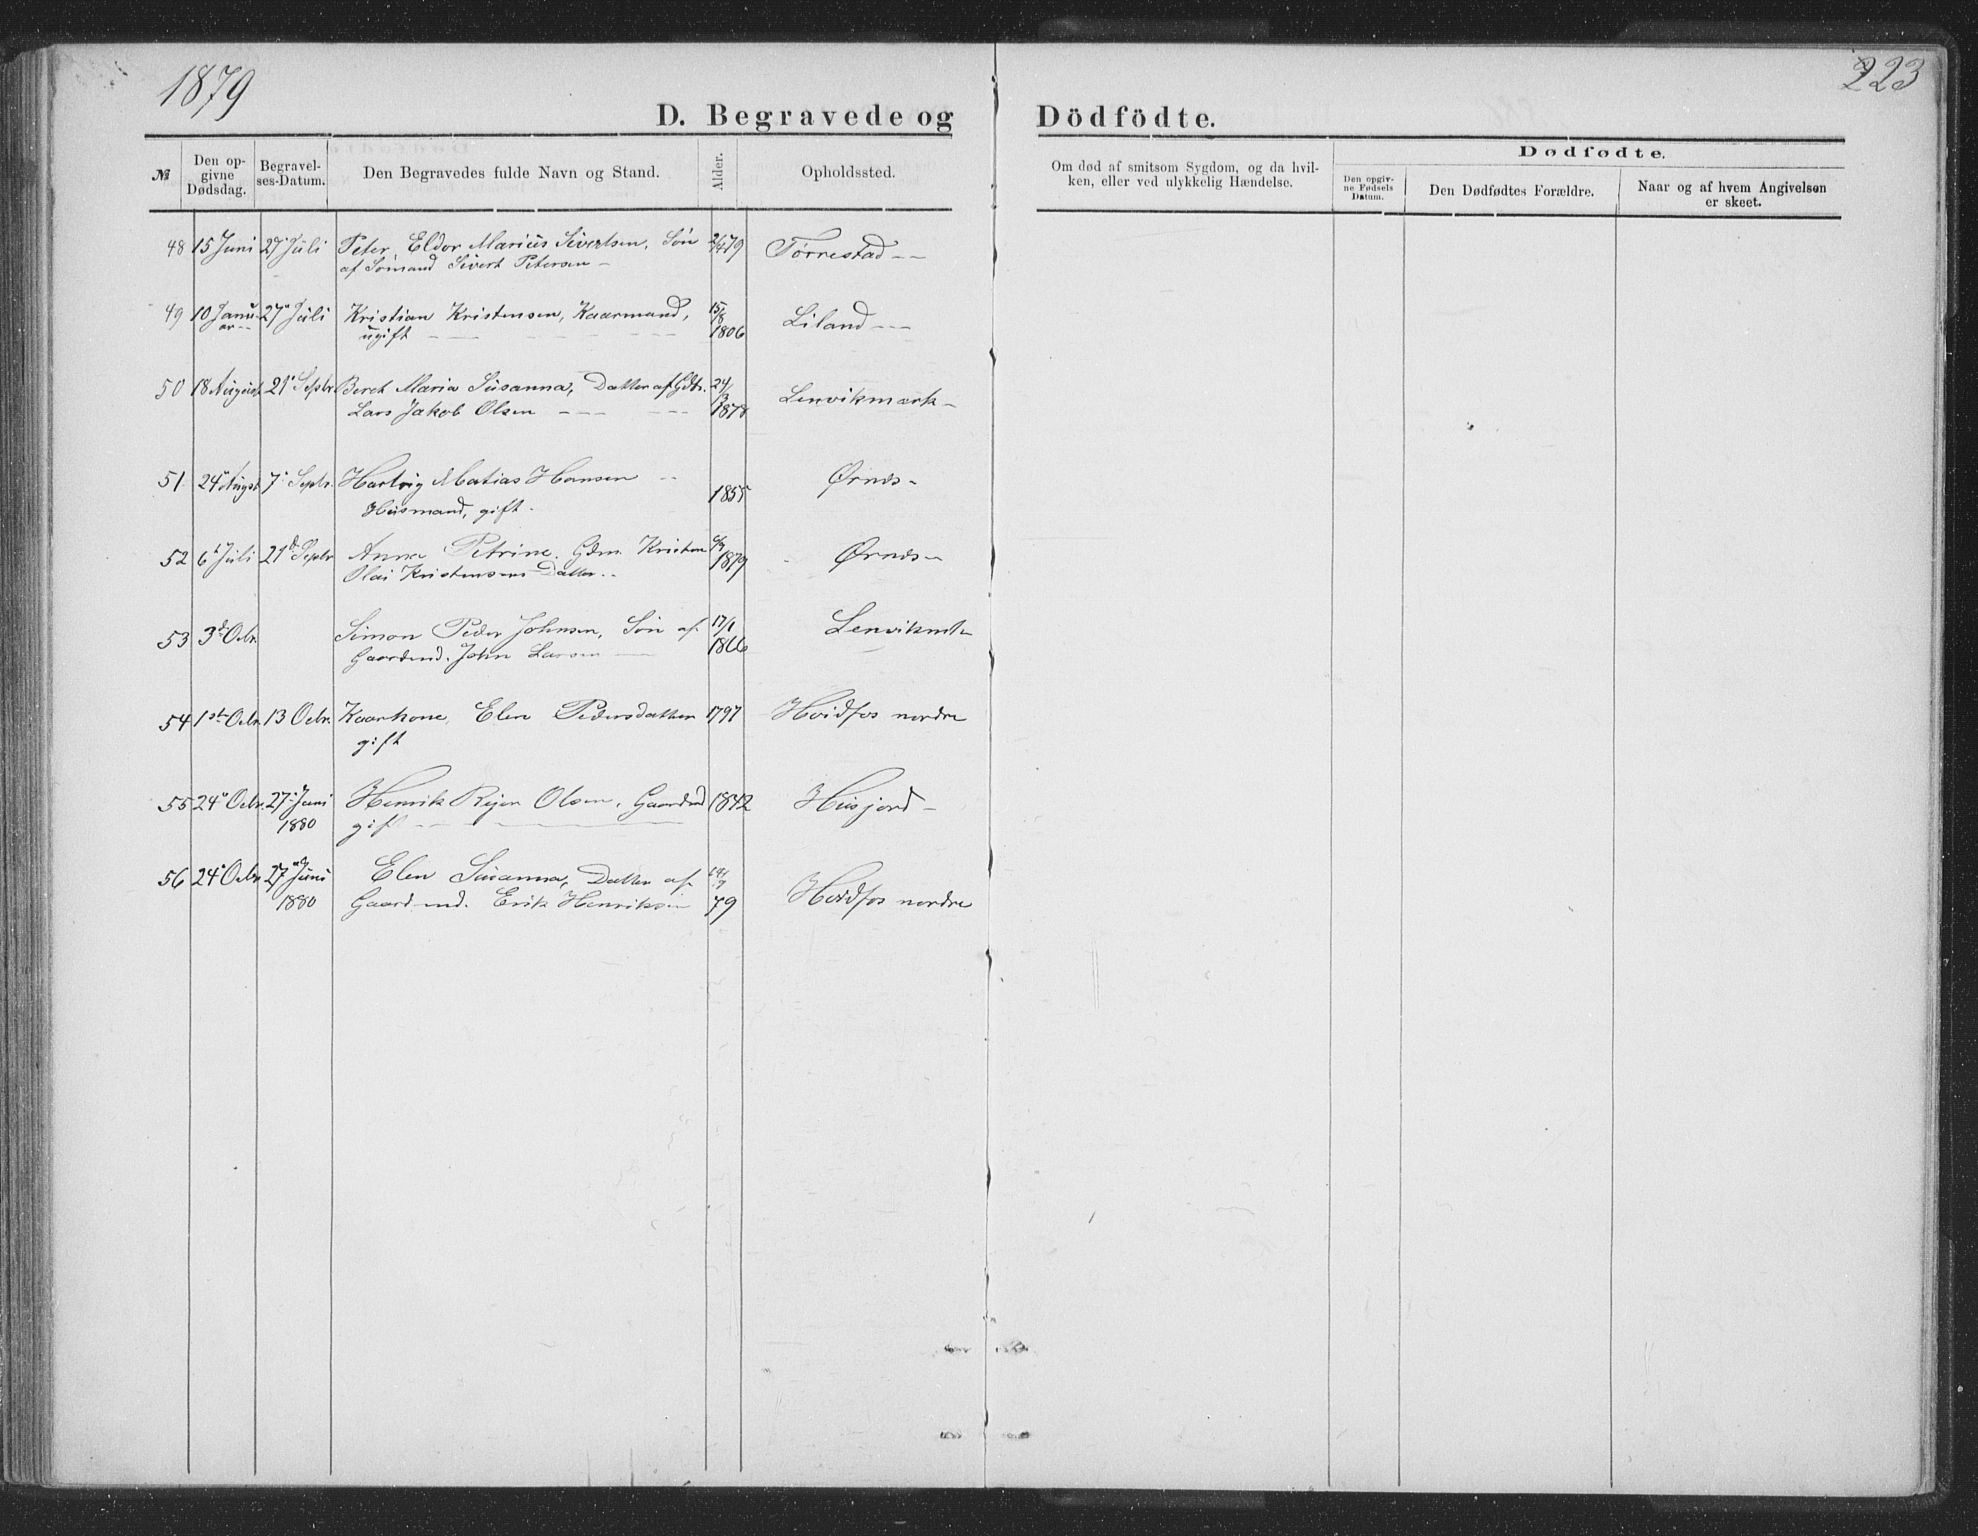 1879
223
D. Begravede og Dödfödte.
№ Den op- Begravel- Den Begravedes fulde Navn og Stand. Alder. Opholdssted. Om død af smitsom Sygdom, og da hvil- Dødfødte.
givne ses-Datum. ken, eller ved ulykkelig Hændelse. Den opgiv- Den Dødfødtes Forældre. Naar og af hvem Angivelsen
Dødsdag. ne Fødsels er skeet.
Datum.
48 15 Juni 27 Juli Peter Eldor Marius Sivertsen, Søn 2/4 79 Tørrestad
af Sømand Sivert Petersen
49 10 Janu- 27 Juli Kristian Kristensen, Kaarmand, 15/8 Liland
ar ugift 1806
50 18 August 21 Septbr. Beret Maria Susanna, Datter af Gdbr. 24/3 Lenvikmark
Lars Jakob Olsen 1878
51 24 August 7 Septr. Hartvig Matias Hansen 1855 Ørnes
Husmand, gift.
52 6 Juli 21 Septbr Anna Petrine. Gdm. Kristen 1879 Ørnes
Olai Kristensens Datter
53 3d Octr. Simon Peder Johnsen, Søn af 17/1 Lenvikmk
Gaardmd. John Larsen 1866
54 1ste Octr. 13 Octr. Kaarkone, Elen Pedersdatter 1797 Hvidfos nordre
gift
55 24 Octr. 27 Juni Henrik Rejer Olsen, Gaardmd 1842 Husjord
1880 gift
56 24 Octr. 27 Juni Elen Susanna, Datter af Hvidfos nordre
1880 Gaardmd. Erik Henriksen 79